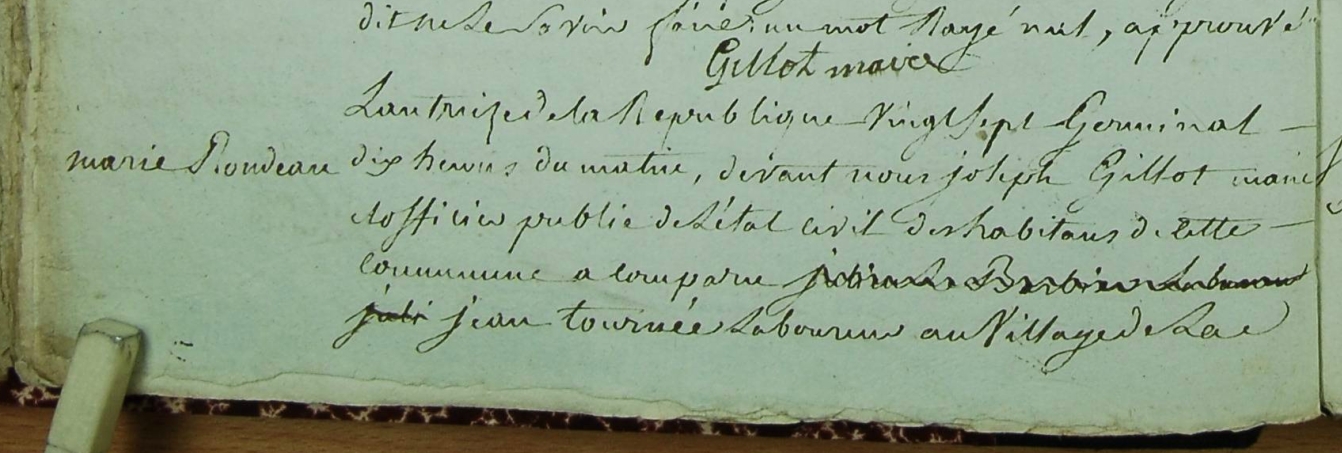 dit ne le savoir faire un mot Rayé nul, approuvé
Gillot maire
Lan treize de la Republique Vingt Sept Germinal
marie Rondeau dix heures du matin, devant nous joseph Gillot maire
et officier public de L'état civil des habitans de Cette
Commune a comparu
jean tournée Laboureur au Village de La